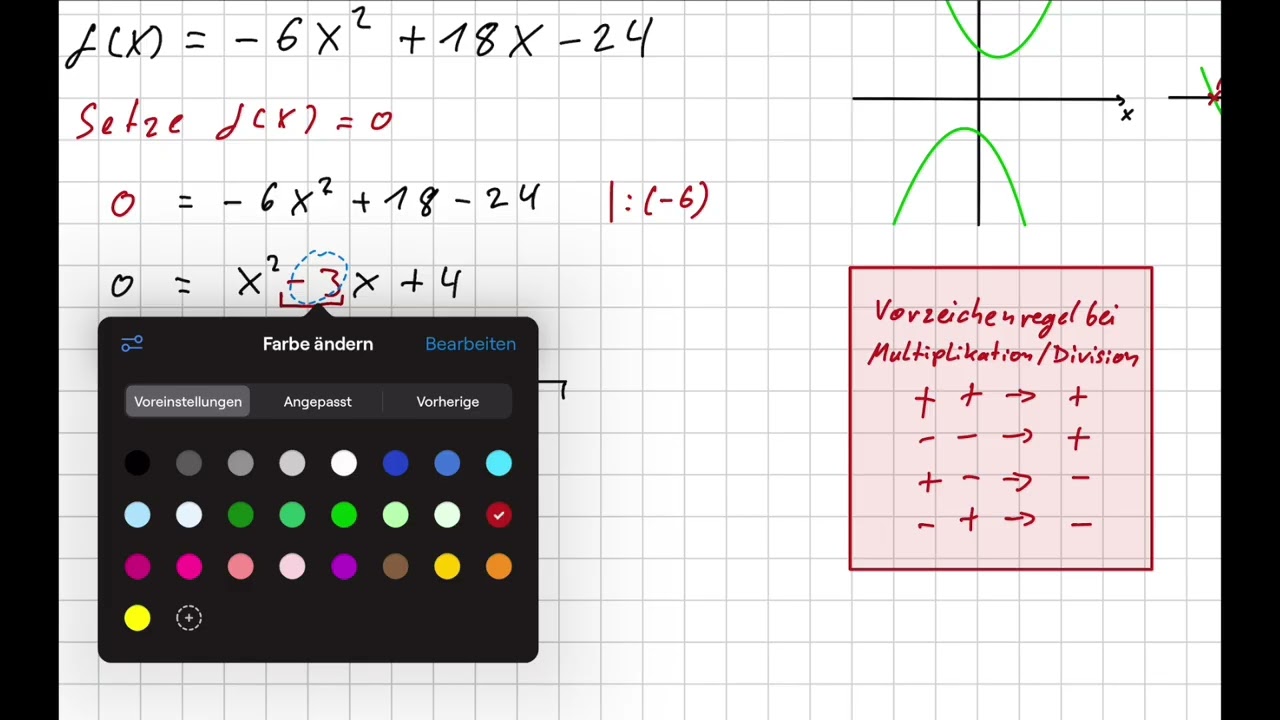 f(x) = - 6x² + 18x - 24
Setze f(x) = 0
0 = - 6x² + 18 - 24 | : (-6)
0 = x² - 3x + 4
Farbe ändern
Bearbeiten
Voreinstellungen
Angepasst
Vorherige
x
Vorzeichenregel bei
Multiplikation/Division
+ + → +
- - → +
+ - → -
- + → -